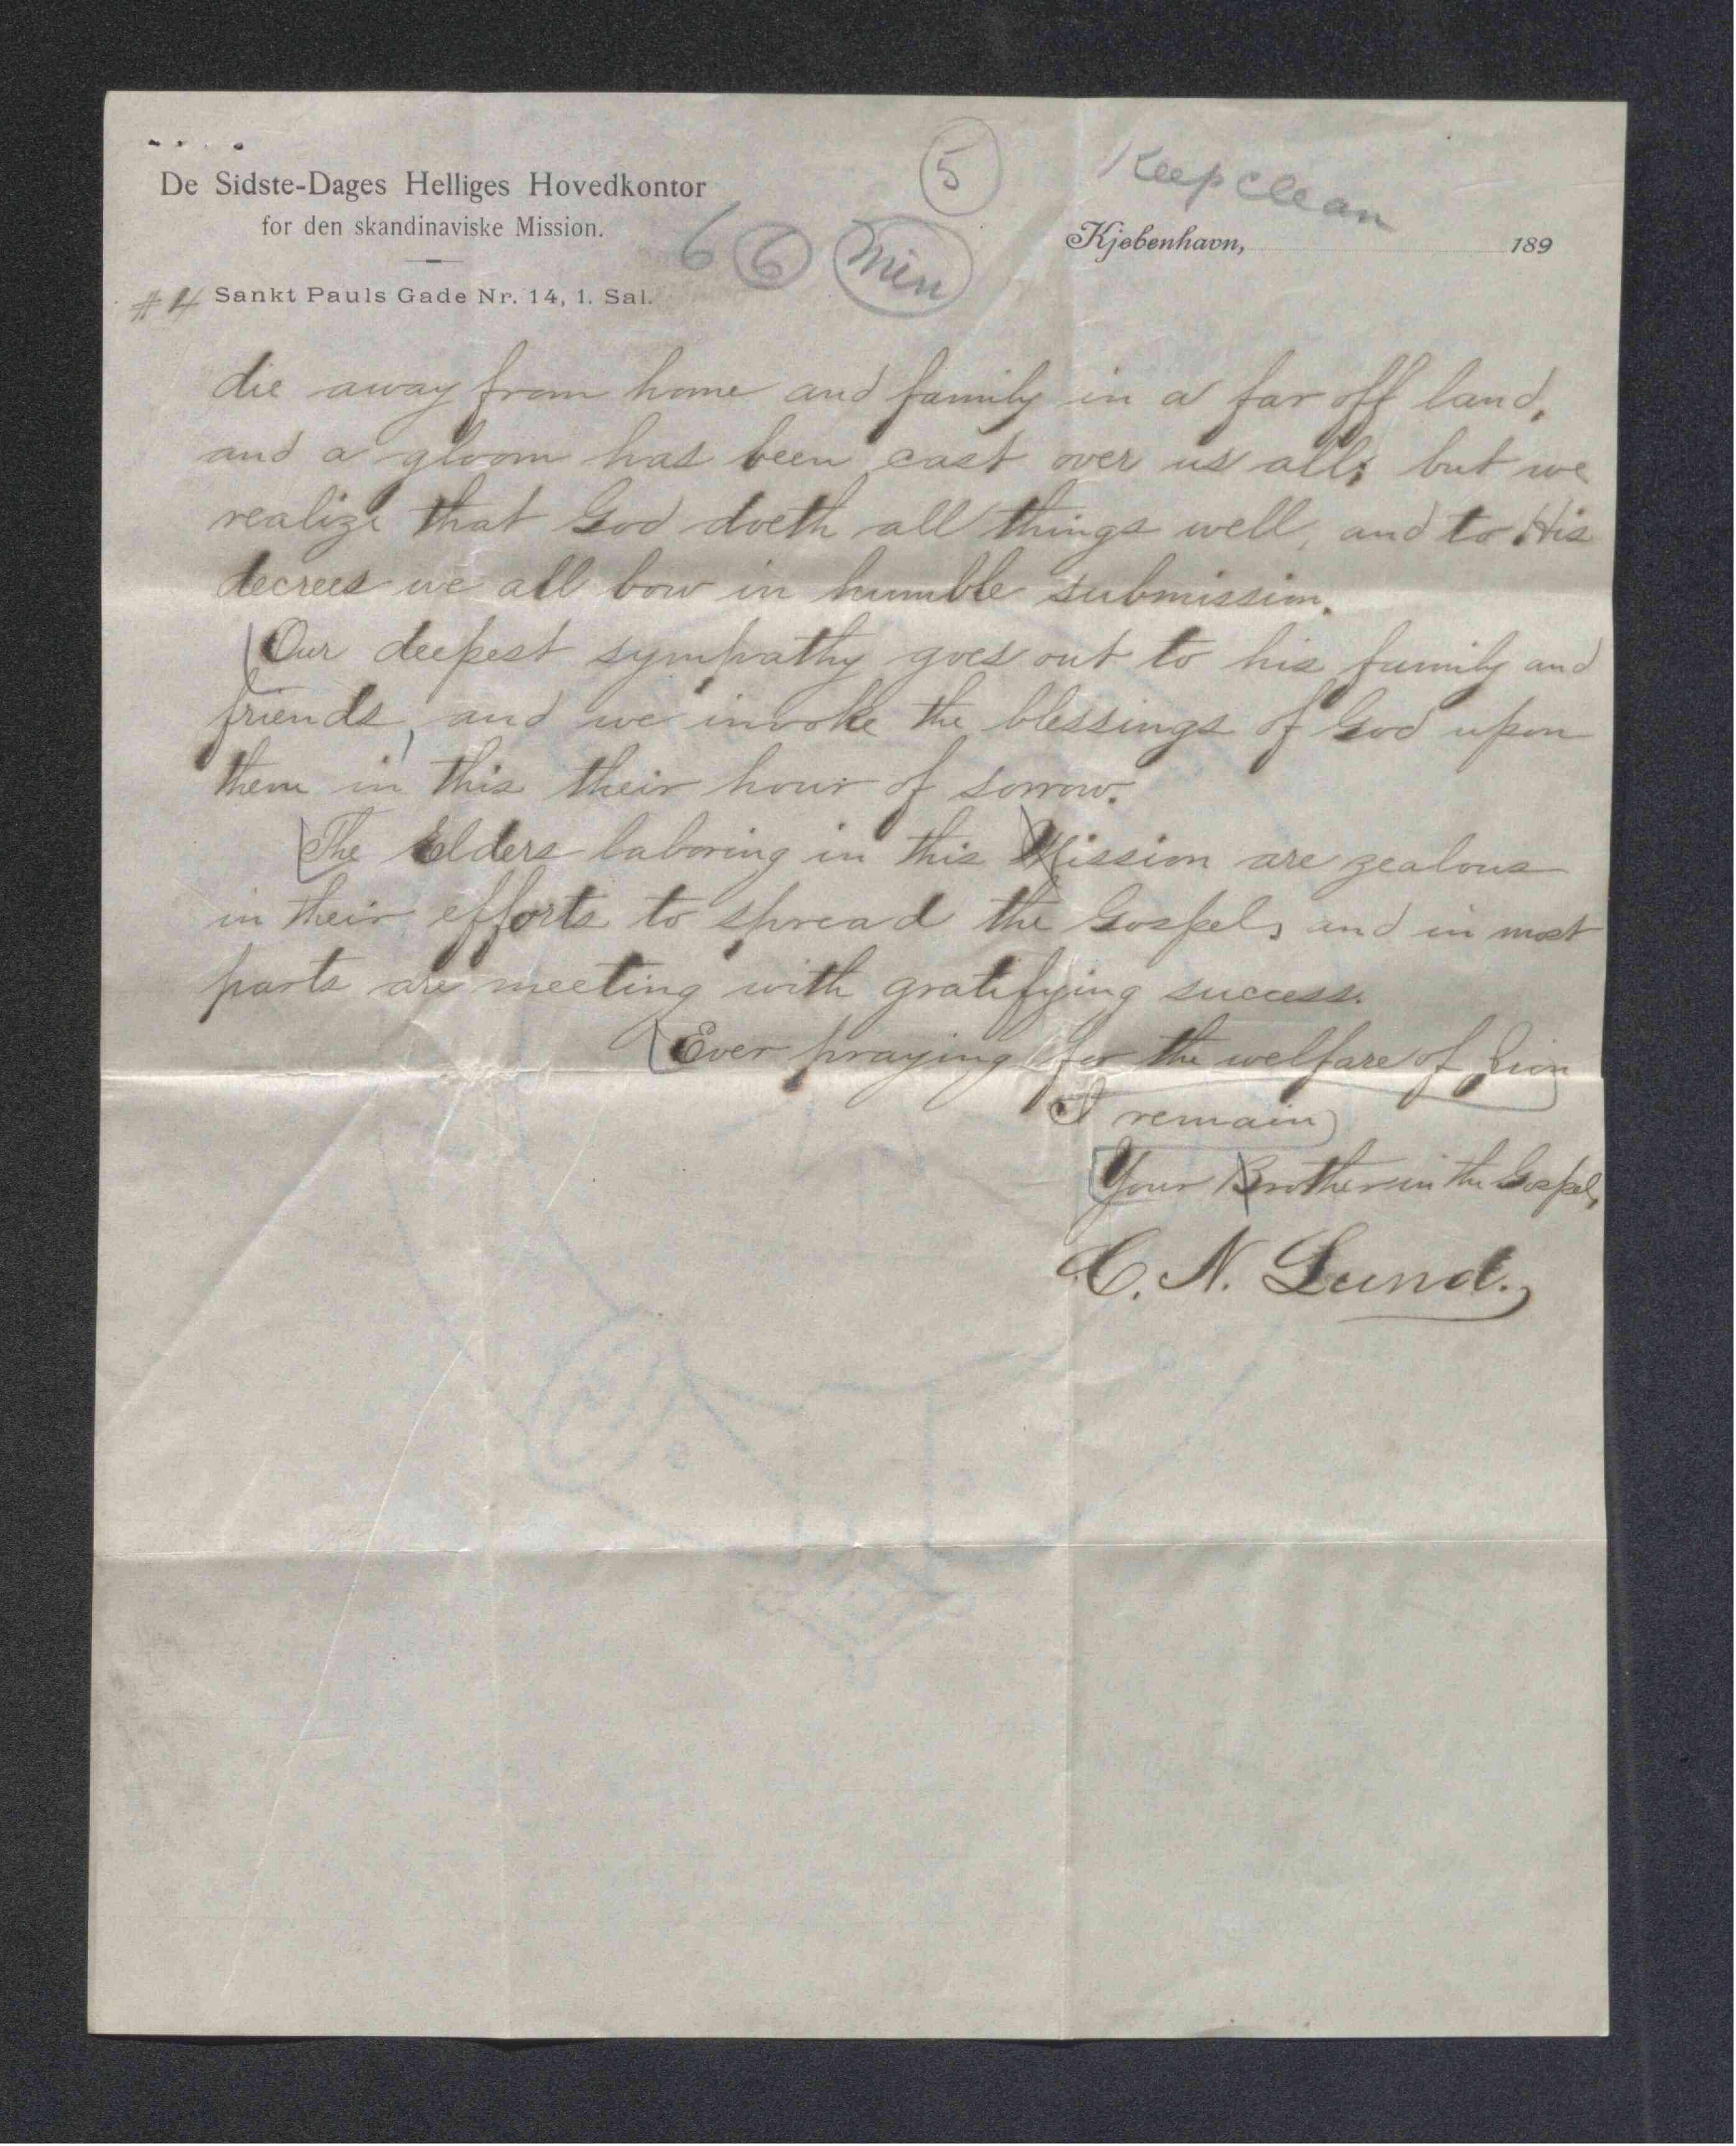 De Sidste-Dages Helliges Hovedkontor
for den skandinaviske Mission.
Sankt Pauls Gade Nr. 14, 1. Sal.
#4
6 6 Min
5
Keep clean
Kjøbenhavn, 189
die away from home and family in a far off land,
and a gloom has been cast over us all; but we
realize that God doeth all things well, and to His
decrees we all bow in humble submission.
Our deepest sympathy goes out to his family and
friends, and we invoke the blessings of God upon
them in this their hour of sorrow.
The Elders laboring in this Mission are zealous
in their efforts to spread the Gospel, and in most
parts are meeting with gratifying success.
Ever praying for the welfare of Zion
I remain
Your Brother in the Gospel,
C. N. Lund.